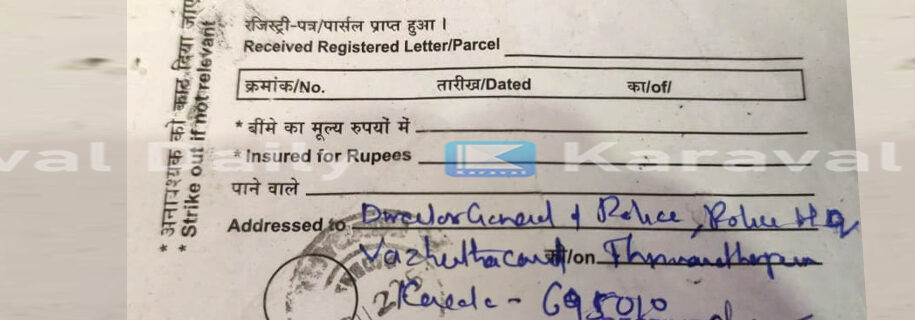 रजिस्ट्री-पत्र/पार्सल प्राप्त हुआ ।
Received Registered Letter/Parcel
क्रमांक/No. तारीख/Dated का/of/
* बीमे का मूल्य रुपयों में
* Insured for Rupees
पाने वाले
Addressed to Director General of Police, Police H Q
Vazhuthacaud को/on
Kerala - 695010
* अनावश्यक को काट दिया जाए
* Strike out if not relevant
val Daily Karaval